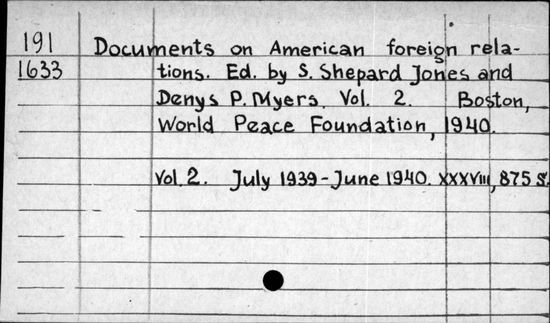 191 Documents on American foreign rela-
1633 tions. Ed. by S. Shepard Jones and
Denys P. Myers. Vol. 2. Boston,
World Peace Foundation, 1940.
Vol. 2. July 1939 - June 1940. XXXVIII, 875 S.